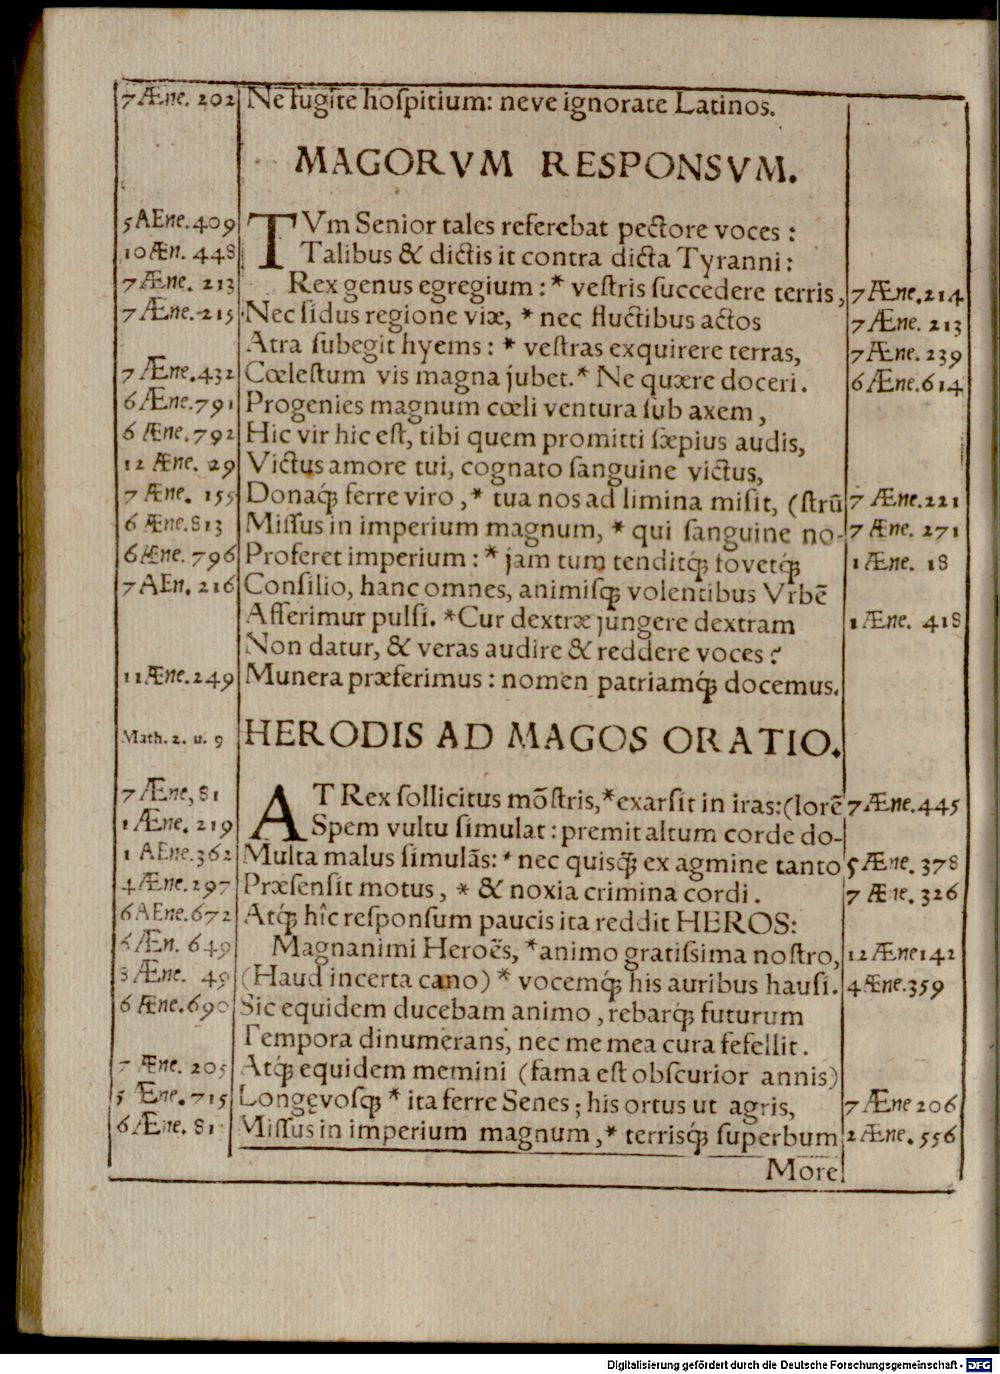 7 Æne. 202 Ne fugite hoſpitium: neve ignorate Latinos.
MAGORVM RESPONSVM.
5 AEne. 409 TVm Senior tales referebat pectore voces :
10 Æn. 448 Talibus & dictis it contra dicta Tyranni :
7 Æne. 213 Rex genus egregium : * veſtris ſuccedere terris, 7 Æne. 214
7 Æne. 215 Nec ſidus regione viæ, * nec fluctibus actos 7 Æne. 213
Atra ſubegit hyems : * veſtras exquirere terras, 7 Æne. 239
7 Æne. 432 Cœleſtum vis magna jubet. * Ne quære doceri. 6 Æne. 614
6 Æne. 791 Progenies magnum cœli ventura ſub axem,
6 Æne. 792 Hic vir hic eſt, tibi quem promitti ſæpius audis,
12 Æne. 29 Victus amore tui, cognato ſanguine victus,
7 Æne. 155 Donaq́; ferre viro, * tua nos ad limina miſit, (ſtrũ 7 Æne. 221
6 Æne. 813 Miſſus in imperium magnum, * qui ſanguine no- 7 Æne. 271
6 Æne. 796 Proferet imperium : * jam tum tenditq́; fovetq́; 1 Æne. 18
7 AEn. 216 Conſilio, hanc omnes, animiſq́; volentibus Vrbē
Afferimur pulſi. * Cur dextræ jungere dextram 1 Æne. 418
Non datur, & veras audire & reddere voces ?
11 Æne. 249 Munera præferimus : nomen patriamq́; docemus.
Math. 2. u. 9 HERODIS AD MAGOS ORATIO.
7 Æne, 81 AT Rex ſollicitus mōſtris, * exarſit in iras: (lorē 7 Æne. 445
1 Æne. 219 Spem vultu ſimulat : premit altum corde do-
1 AEne. 362 Multa malus ſimulãs: * nec quiſq́; ex agmine tanto 5 Æne. 378
4 Æne. 297 Præſenſit motus, * & noxia crimina cordi. 7 Æne. 326
6 AEne. 672 Atq́; hîc reſponſum paucis ita reddit HEROS:
6 Æn. 649 Magnanimi Heroës, * animo gratiſſima noſtro, 12 Æne 142
3 Æne. 49 (Haud incerta cano) * vocemq́; his auribus hauſi. 4 Æne. 359
6 Æne. 690 Sic equidem ducebam animo, rebarq́; futurum
Tempora dinumerans, nec me mea cura fefellit.
7 Æne. 205 Atq́; equidem memini (fama eſt obſcurior annis)
5 Æne. 715 Longęvoſq́; * ita ferre Senes ; his ortus ut agris, 7 Æne 206
6 Æne. 81 Miſſus in imperium magnum, * terriſq́; ſuperbum 2 Æne. 556
More
Digitalisierung gefördert durch die Deutsche Forschungsgemeinschaft - DFG